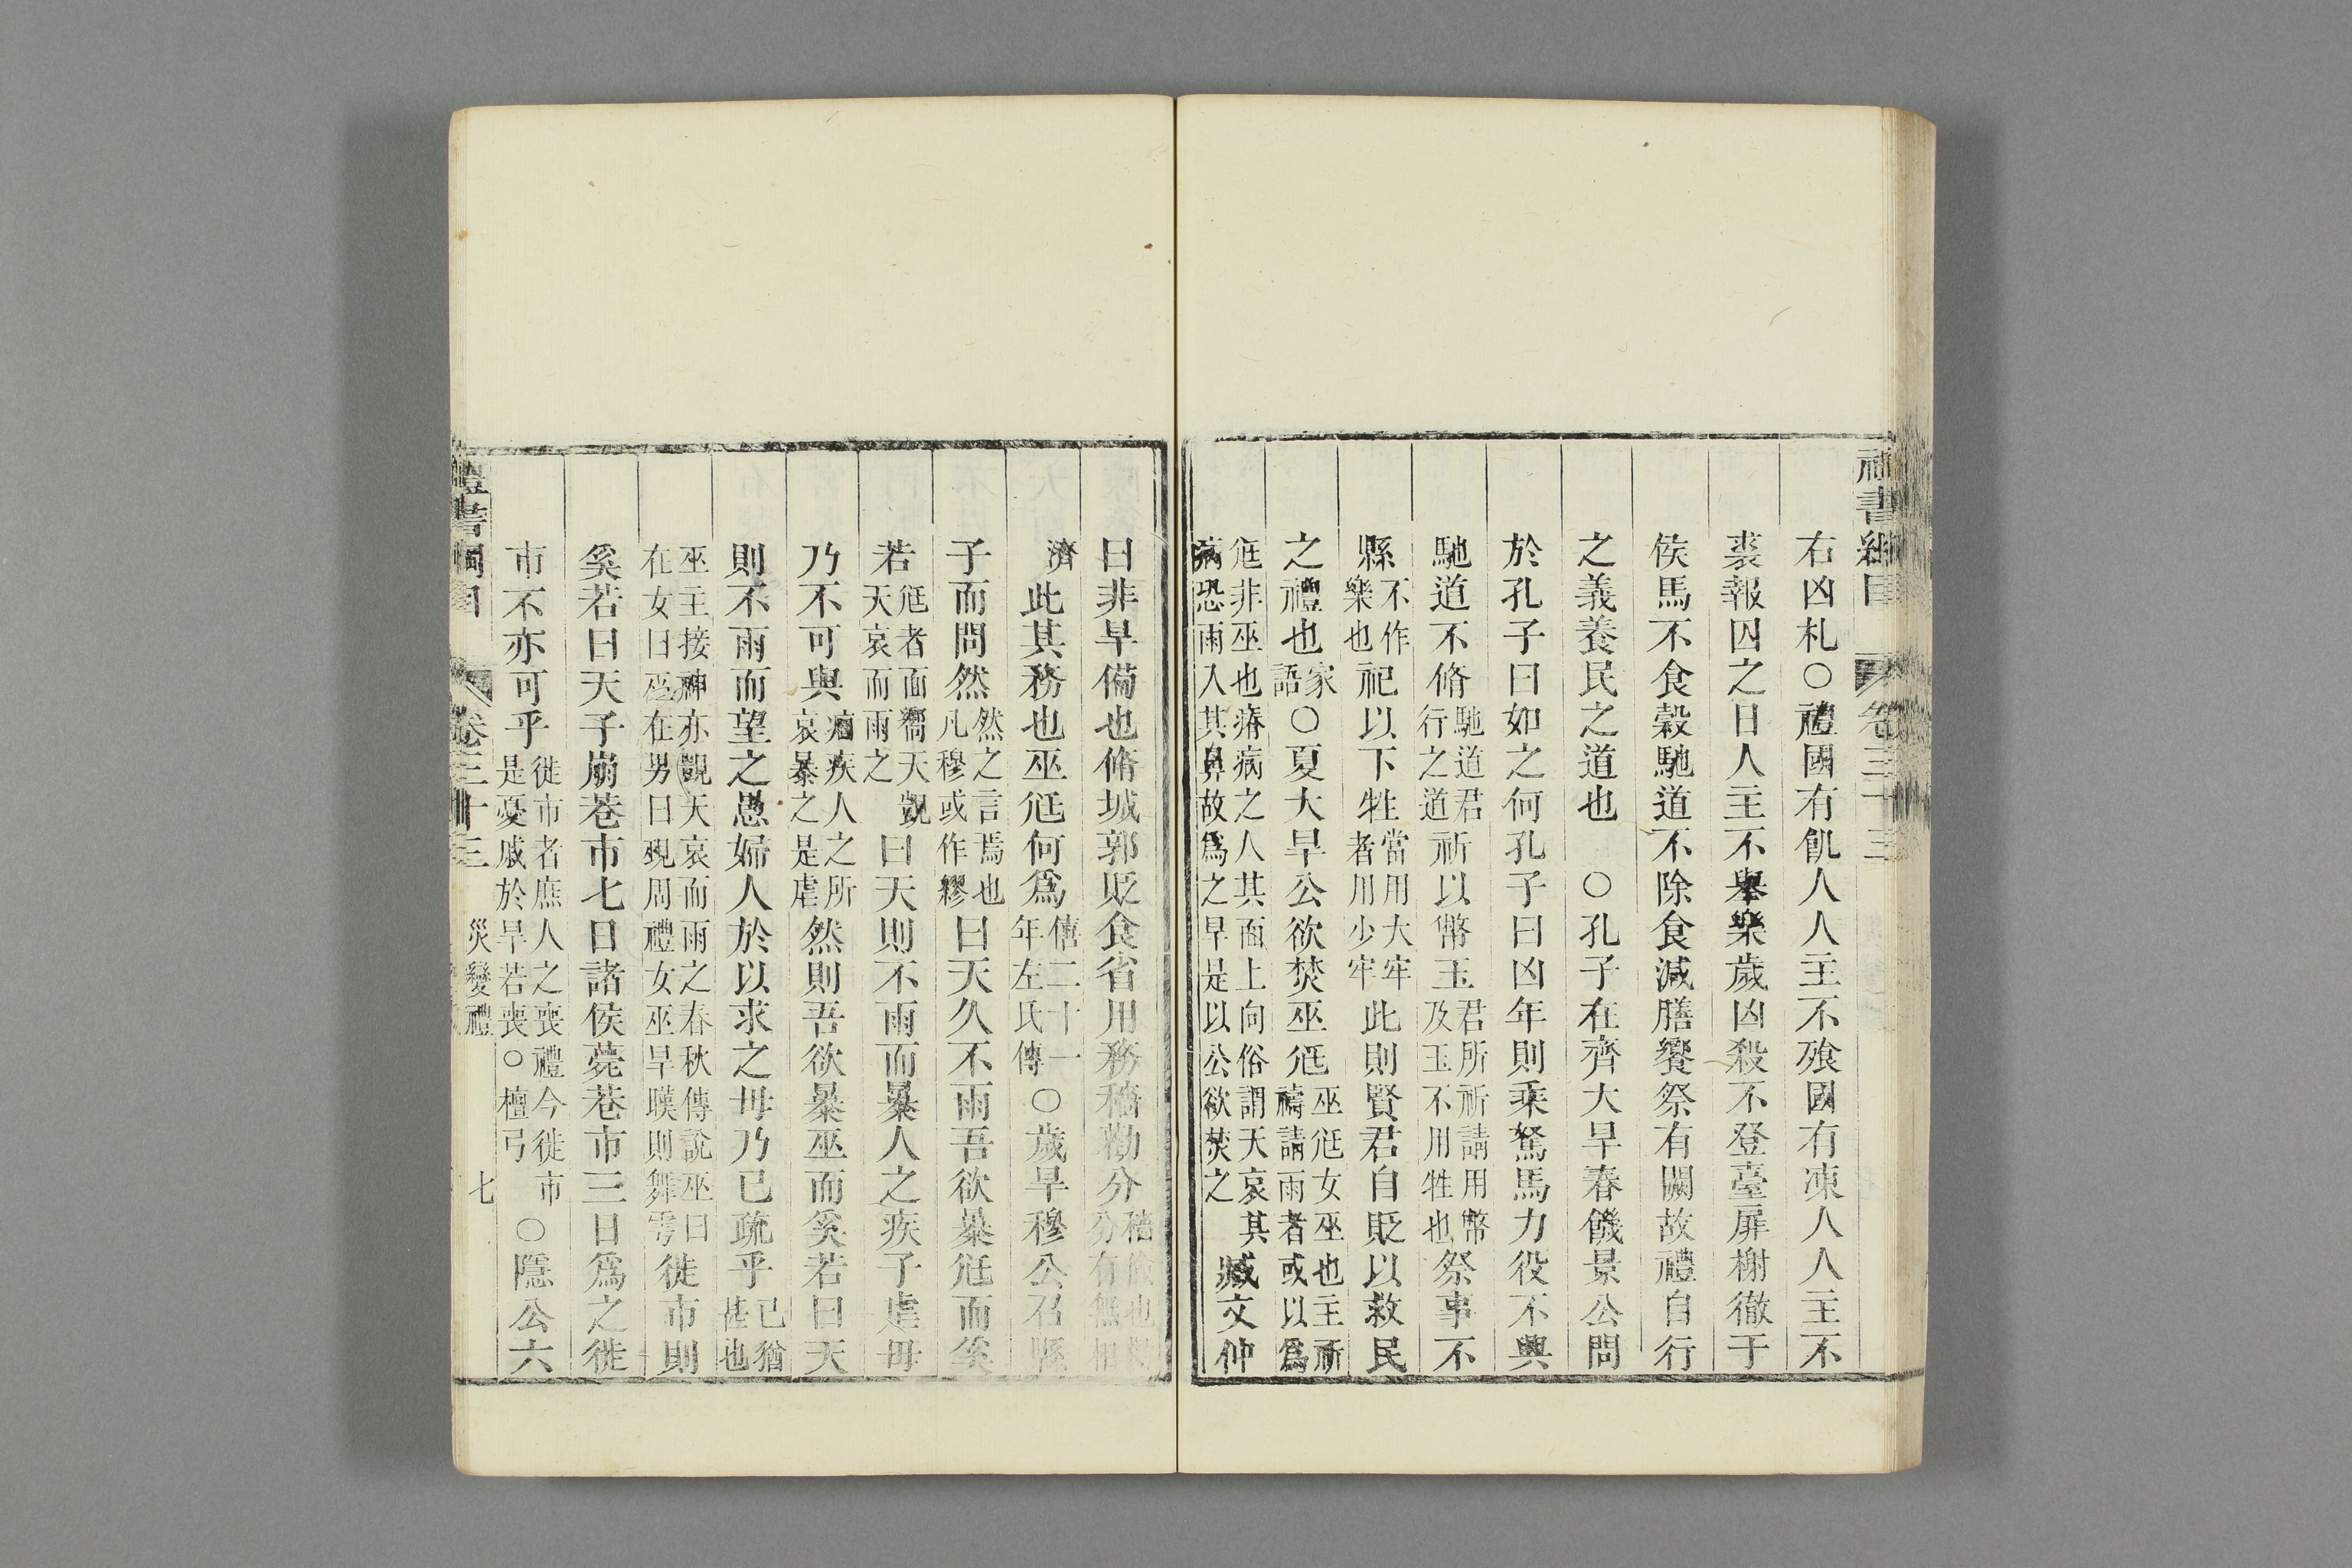 禮書綱目 卷三十三
右凶札○禮國有飢人人主不飱國有凍人人主不
裘報囚之日人主不舉樂歲凶殺不登臺扉榭徹于
侯馬不食穀馳道不除食減膳饗祭有闕故禮自行
之義養民之道也 ○孔子在齊大旱春饑景公問
於孔子曰如之何孔子曰凶年則乘駑馬力役不興
馳道不脩馳道君行之道祈以幣玉君所祈請用幣及玉不用牲也祭事不
縣不作樂也祀以下牲當用大牢者用少牢此則賢君自貶以救民
之禮也家語○夏大旱公欲焚巫尫巫尫女巫也主祈禱請雨者或以爲
尫非巫也瘠病之人其面上向俗謂天哀其病恐雨入其鼻故爲之旱是以公欲焚之臧文仲
曰非旱備也脩城郭貶食省用務穡勸分穡儉也勸分有無相
濟此其務也巫尫何爲僖二十一年左氏傳○歲旱穆公召縣
子而問然然之言焉也凡穆或作繆曰天久不雨吾欲暴尫而奚
若尫者面鄉天覬天哀而雨之曰天則不雨而暴人之疾子虐毋
乃不可與痼疾人之所哀暴之是虐然則吾欲暴巫而奚若曰天
則不雨而望之愚婦人於以求之毋乃已疏乎已猶甚也
巫主接神亦覬天哀而雨之春秋傳說巫曰在女曰巫在男曰覡周禮女巫旱暵則舞雩徙市則
奚若曰天子崩巷市七日諸侯薨巷市三日爲之徙
市不亦可乎徙市者庶人之喪禮今徙市是憂戚於旱若喪○檀弓○隱公六
禮書綱目 卷三十三 災變禮 七